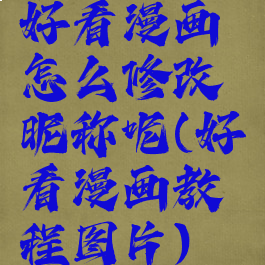 好看漫画
怎么修改
昵称呢(好
看漫画教
程图片)